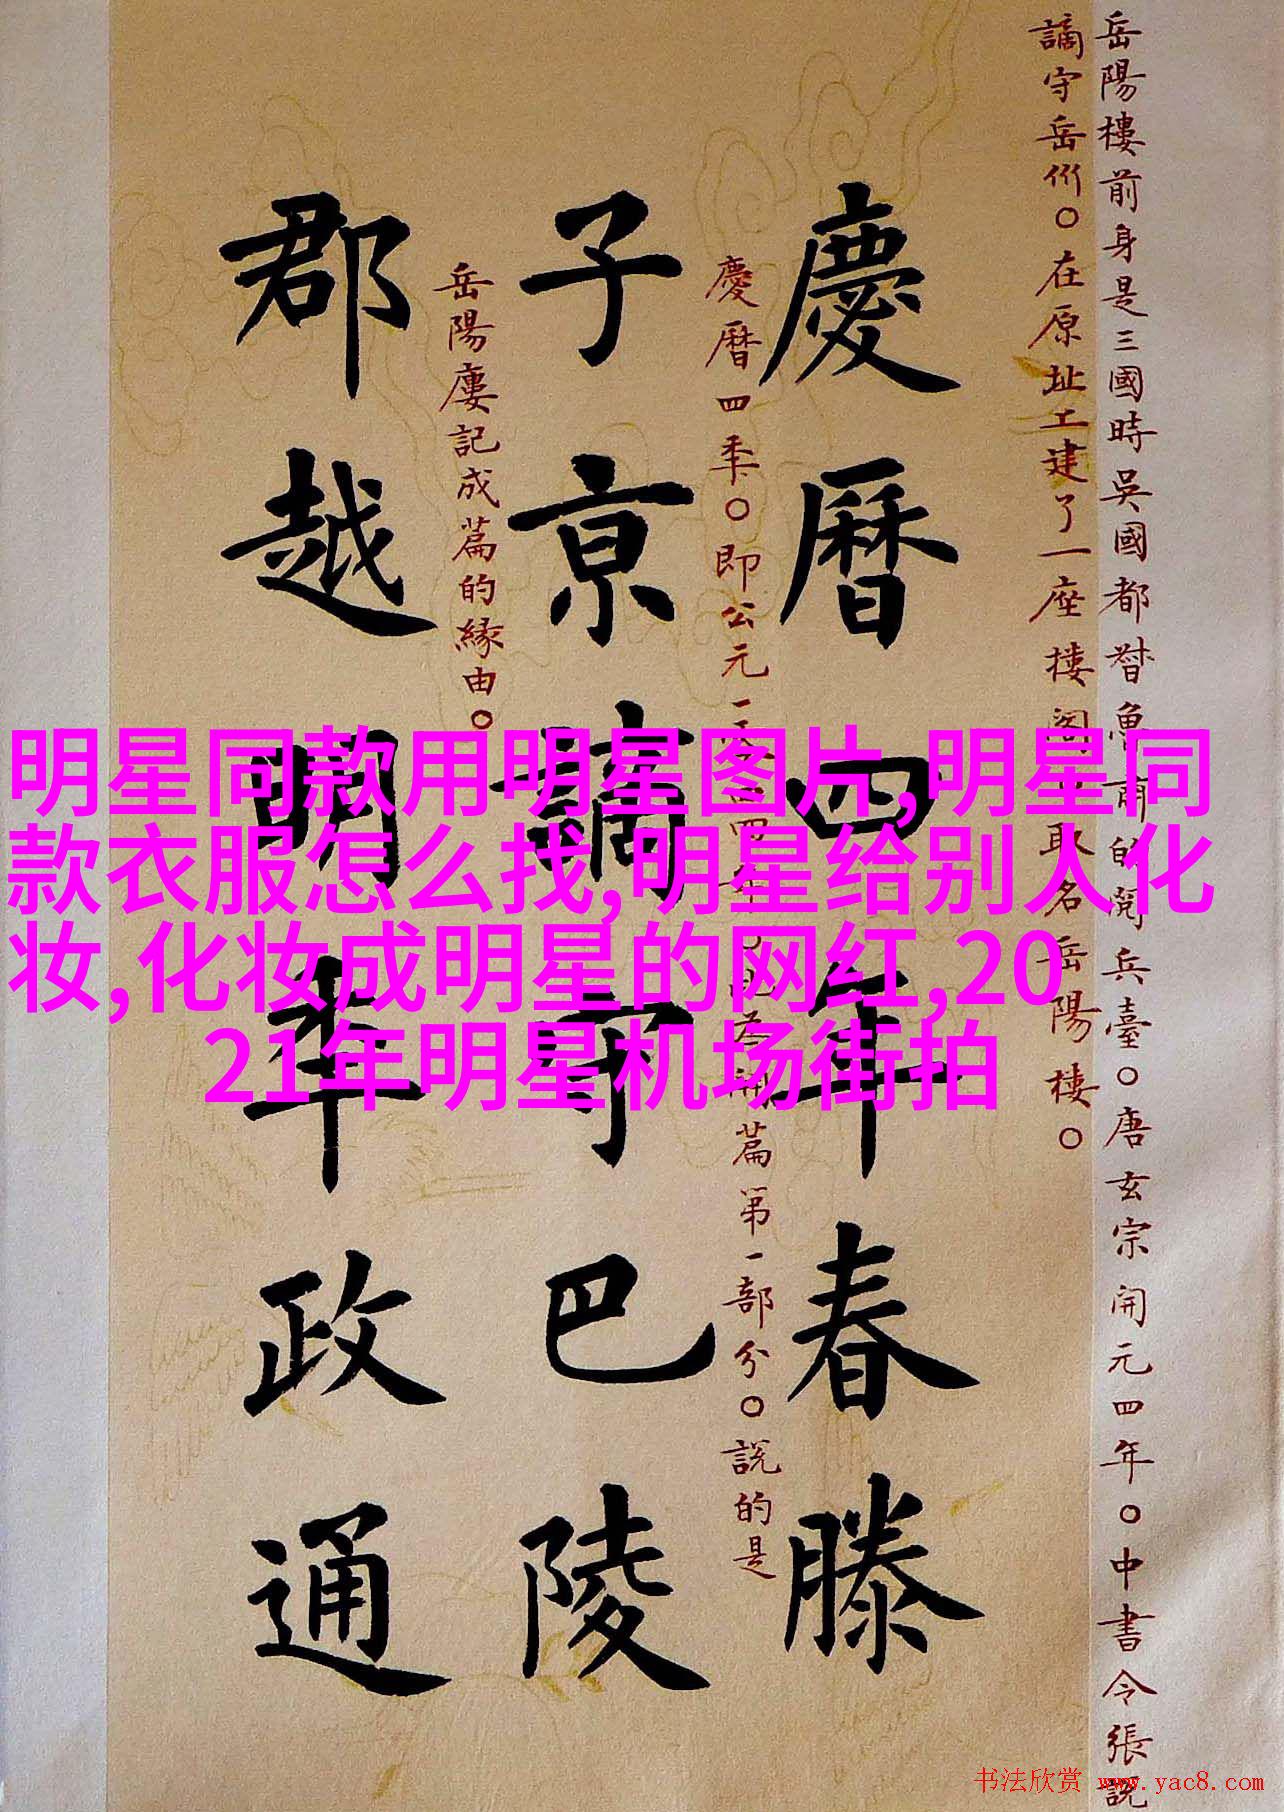 岳陽樓前身是三國時吳國都督魯肅的閱兵臺○唐玄宗開元四年○中書令張説
謫守岳州○在原址上建了一座樓閣取名岳陽樓○
慶曆四年春滕
慶曆四年○即公元一〇四四年○開篇第一部分○説的是
子京謫守巴陵
岳陽樓記成篇的緣由○
郡越明年政通
明星同款用明星图片,明星同
款衣服怎么找,明星给别人化
妆,化妆成明星的网红,20
21年明星机场街拍
书法欣赏 www.yac8.com